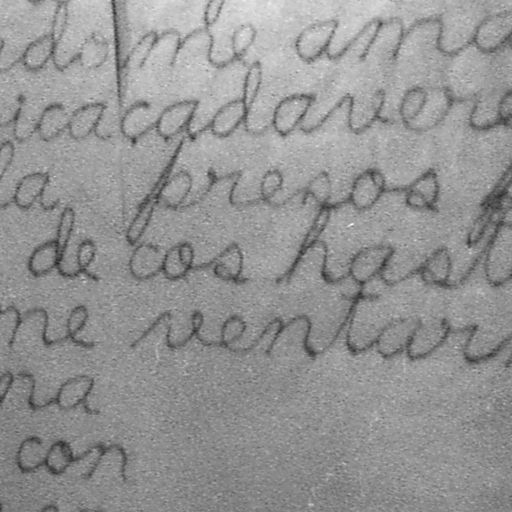 do me ama
ica cadavere
la presos p
de cos hast
me ventar
na
con